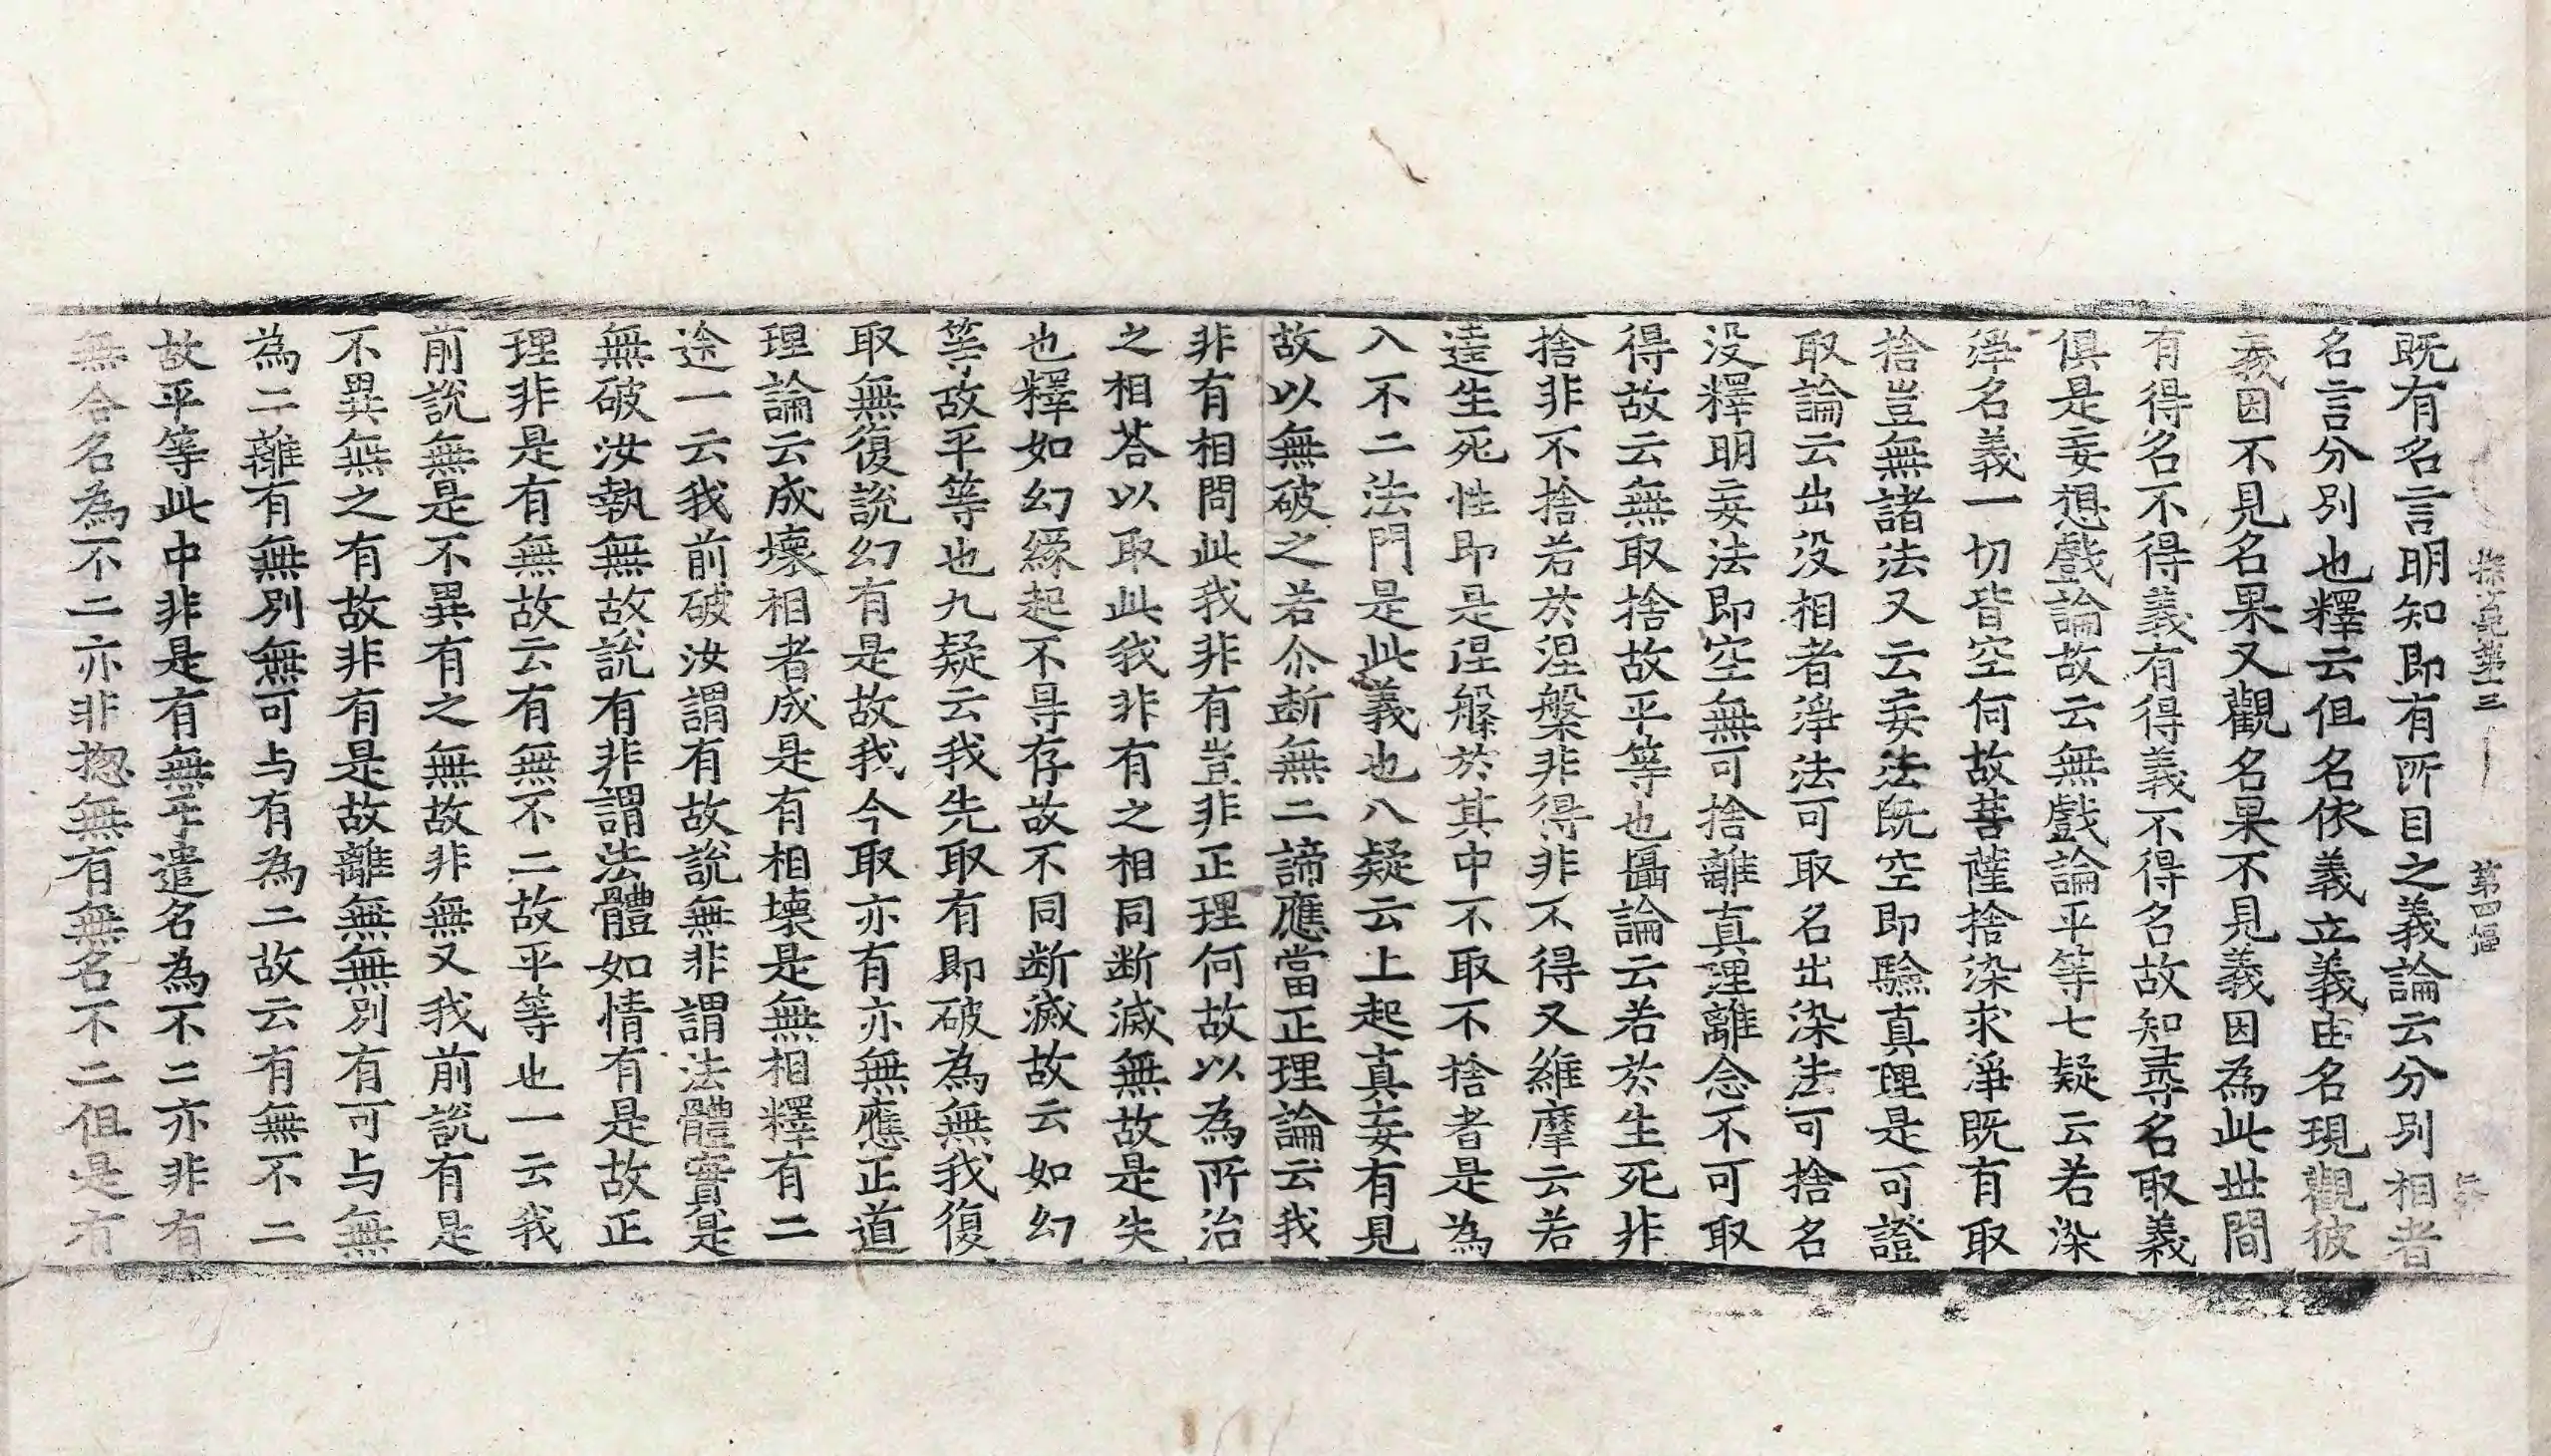 探玄記第十三　第四幅
既有名言明知即有所目之義論云分別相者
名言分別也釋云但名依義立義由名現觀彼
義因不見名果又觀名果不見義因為此世間
有得名不得義有得義不得名故知尋名取義
俱是妄想戲論故云無戲論平等七疑云若染
淨名義一切皆空何故菩薩捨染求淨既有取
捨豈無諸法又云妄法既空即驗真理是可證
取論云出沒相者淨法可取名出染法可捨名
没釋明妄法即空無可捨離真理離念不可取
得故云無取捨故平等也攝論云若於生死非
捨非不捨若於涅槃非得非不得又維摩云若
達生死性即是涅槃於其中不取不捨者是為
入不二法門是此義也八疑云上起真妄有見
故以無破之若尒斷無二諦應當正理論云我
非有相問此我非有豈非正理何故以為所治
之相荅以取此我非有之相同断滅無故是失
也釋如幻緣起不㝵存故不同断滅故云如幻
等故平等也九疑云我先取有即破為無我復
取無復說幻有是故我今取亦有亦無應正道
理論云成壞相者成是有相壞是無相釋有二
途一云我前破汝謂有故說無非謂法體實是
無破汝執無故說有非謂法體如情有是故正
理非是有無故云有無不二故平等也一云我
前說無是不異有之無故非無又我前說有是
不異無之有故非有是故離無無別有可与無
為二離有無別無可与有為二故云有無不二
故平等此中非是有無平遣名為不二亦非有
無合名為不二亦非揔無有無名不二但是有